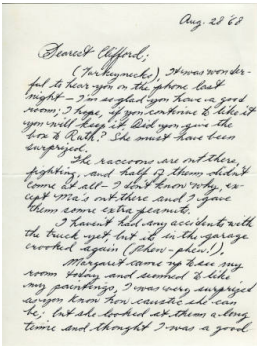 Aug. 28 '68
Dearest Clifford;
(Turkeynecks), It was wonder-
ful to hear you on the phone last
night – I'm so glad you have a good
room; I hope, if you continue to like it
you will keep it. Did you give the
box to Ruth? She must have been
surprized.
The raccoons are out there,
fighting, and half of them didn't
come at all – I don't know why, ex-
cept Ma's out there and I gave
them some extra peanuts.
I haven't had any accidents with
the truck yet, but its in the garage
crooked again (phew-phew!).
Margaret came up to see my
room today and seemed to like
my paintings, I was very surprized
as you know how caustic she can
be; but she looked at them a long
time and thought I was a good